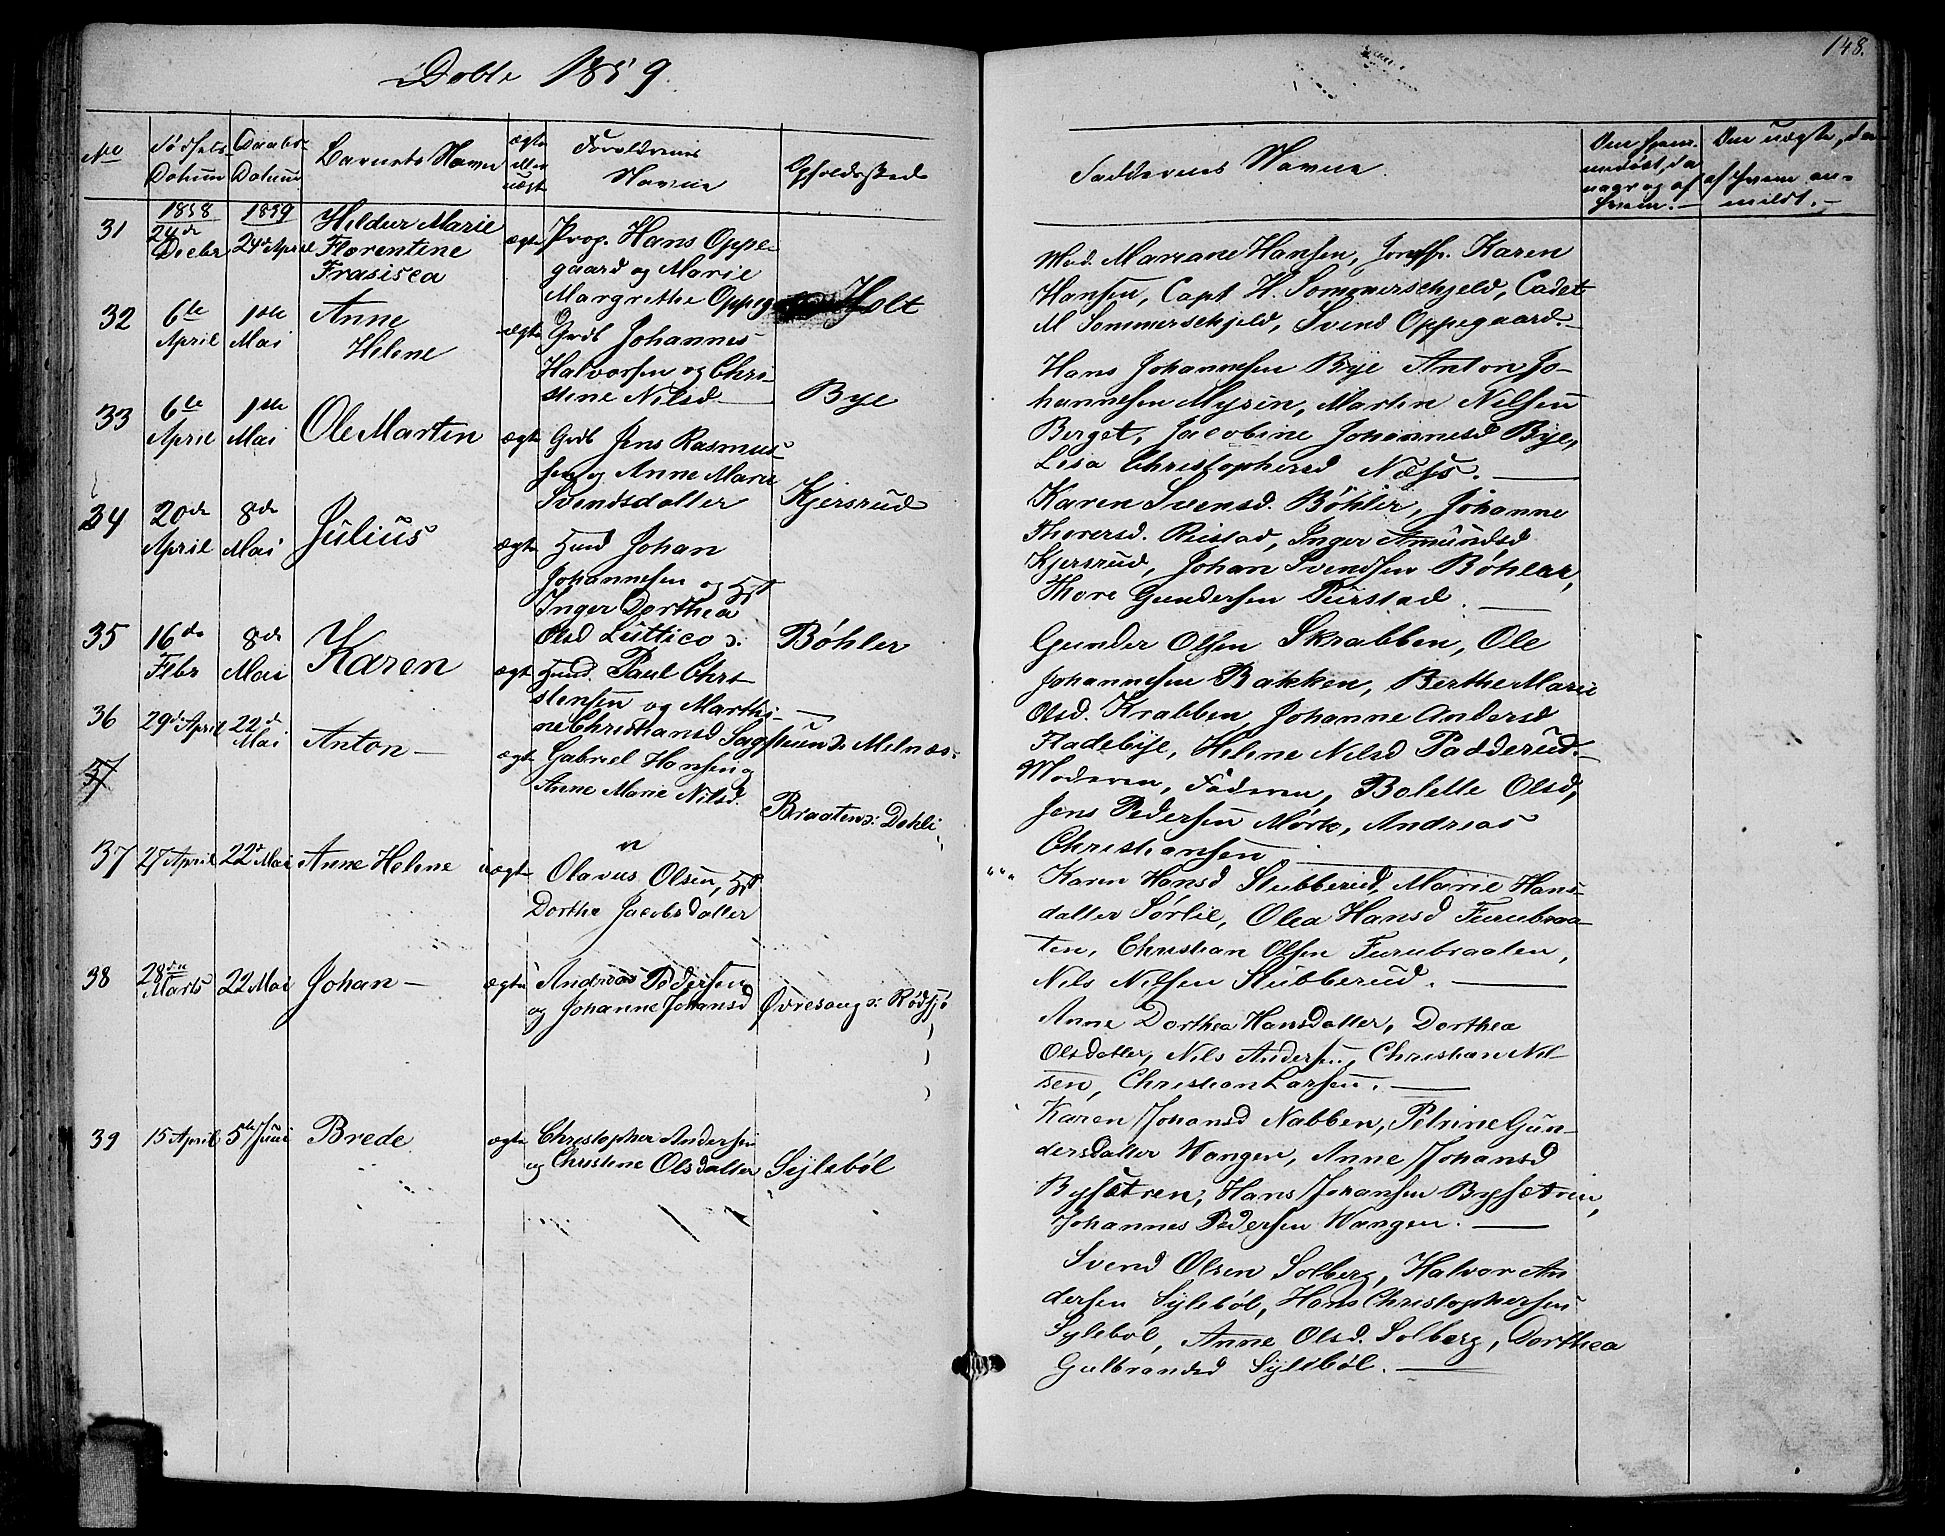 Døbte 1859.
148.
No
Fødsels-
Datum
Daabs-
Datum
Barnets Navn
ægte
eller
uægte
Forældrenes
Navne
Opholdssted
31
1858
24de
Decbr
1859
24de April
Hildur Marie
Florentine
Frasisca
ægte
Prop. Hans Oppe-
gaard og Marie
Margrethe Oppeg
Holt
32
6te
April
1ste
Mai
Anne
Helene
ægte
Grdb Johannes
Halvorsen og Chri-
stine Nilsd
Bye
33
6te
April
1ste
Mai
Ole Martin
ægte
Grdb Jens Rasmus-
sen og Anne Marie
Svendsdatter
Kjersrud
34
20de
April
8de
Mai
Julius
ægte
Huusd Johan
Johannesen og
Inger Dorthea
Olsd
Bøhler
35
16de
Febr
8de
Mai
Karen
ægte
Huusd. Paul Chri-
stensen og Marthi-
ne Christiansd
Melnæs
36
29de April
22de
Mai
Anton
ægte
Gabriel Hansen og
Anne Marie Nilsd.
Braaten : Dahli
37
37
27 April
22de Mai
Anne Helene
uægte
Olavus Olsen,
Dorthe Jacobsdatter
38
28de
Marts
22 Mai
Johan
ægte
Andreas Pedersen
og Johanne Johansd
Øvresaug : Rødsjø
39
15 April
5te Juni
Brede
ægte
Christopher Andersen
og Christine Olsdatter
Sylebøl
Faddernes Navne
Om hjem-
medøbt, da
naar og af
hvem.
Om uægte, da
af hvem an-
meldt.
Mad. Mariane Hansen, Jomfr. Karen
Hansen, Capt H. Sommerschjeld, Cadet
M Sommerschjeld, Svend Oppegaard.
Hans Johannesen Bye Anton Jo-
hannesen Myren, Martin Nilsen
Berget, Jacobine Johannesd Bye,
Lisa Christophersd Næss.
Karen Svensd. Bøhler, Johanne
Thorersd. Ristad, Inger Amundsd
Kjersrud, Johan Svendsen Bøhler,
Thore Gundersen
Gunder Olsen Skrabben, Ole
Johannesen Bakken, Berthe Marie
Olsd. Krabben, Johanne Andersd
Fladebye, Helene Nilsd Padderud.
Moderen, Faderen, Bolette Olsd,
Jens Pedersen Mørk, Andreas
Christiansen
Karen Hansd Stubberud, Marie Hans-
datter Sørlie, Olea Hansd Furubraa-
ten, Christian Olsen Furubraaten,
Nils Nilsen Stubberud.
Anne Dorthea Hansdatter, Dorthea
Olsdatter, Nils Andersen, Christian Nil-
sen, Christian Larsen.
Karen Johansd Nabben, Petrine Gun-
dersdatter Wangen, Anne Johansd
Bysætren, Hans Johansen Bysætren,
Johannes Pedersen Wangen.
Svend Olsen Solberg, Halvor An
dersen Sylebøl, Hans Christophersen
Sylebøl, Anne Olsd. Solberg, Dorthea
Gulbrandsd Sylebøl.